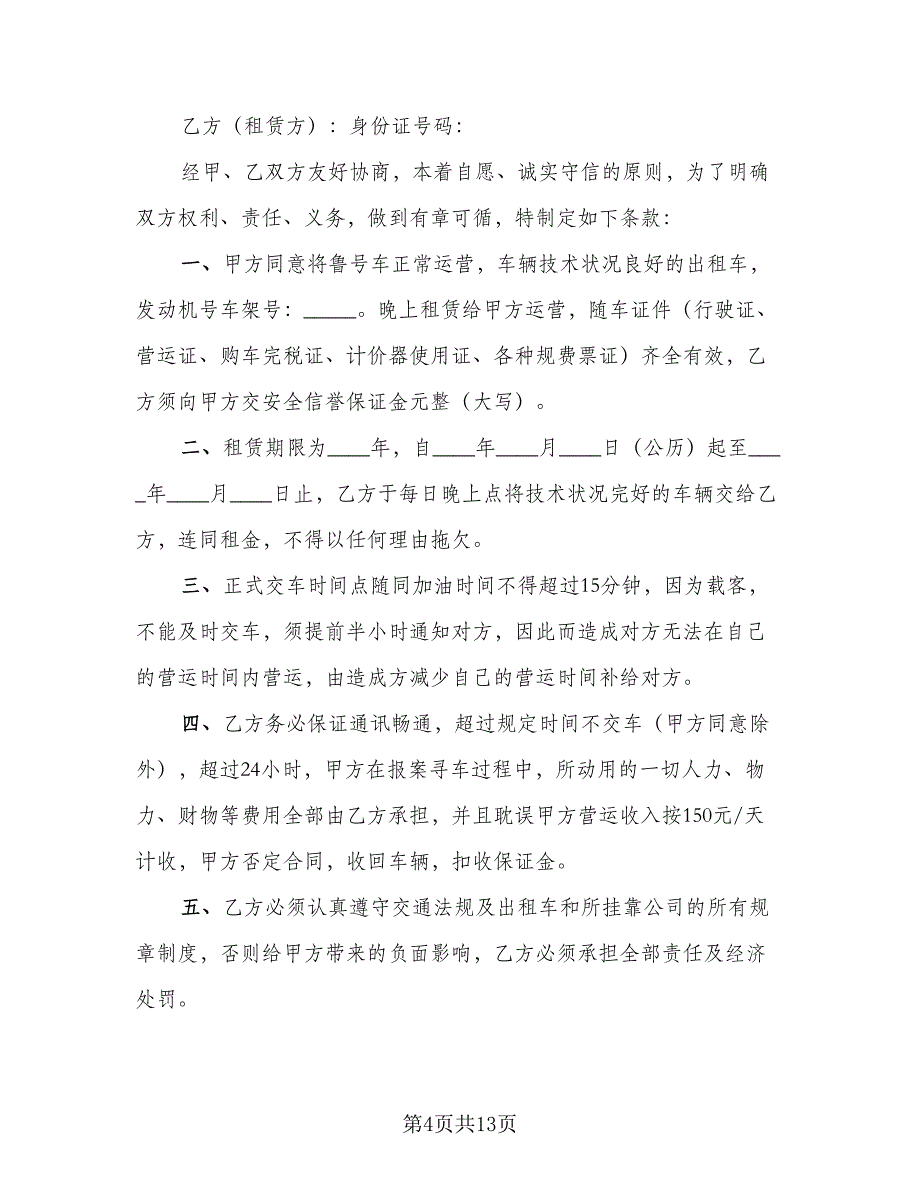 乙方（租赁方）：身份证号码：
经甲、乙双方友好协商，本着自愿、诚实守信的原则，为了明确
双方权利、责任、义务，做到有章可循，特制定如下条款：
一、甲方同意将鲁号车正常运营，车辆技术状况良好的出租车，
发动机号车架号：_____。晚上租赁给甲方运营，随车证件（行驶证、
营运证、购车完税证、计价器使用证、各种规费票证）齐全有效，乙
方须向甲方交安全信誉保证金元整（大写）。
二、租赁期限为____年，自____年____月____日（公历）起至___
_年____月____日止，乙方于每日晚上点将技术状况完好的车辆交给乙
方，连同租金，不得以任何理由拖欠。
三、正式交车时间点随同加油时间不得超过15分钟，因为载客，
不能及时交车，须提前半小时通知对方，因此而造成对方无法在自己
的营运时间内营运，由造成方减少自己的营运时间补给对方。
四、乙方务必保证通讯畅通，超过规定时间不交车（甲方同意除
外），超过24小时，甲方在报案寻车过程中，所动用的一切人力、物
力、财物等费用全部由乙方承担，并且耽误甲方营运收入按150元/天
计收，甲方否定合同，收回车辆，扣收保证金。
五、乙方必须认真遵守交通法规及出租车和所挂靠公司的所有规
章制度，否则给甲方带来的负面影响，乙方必须承担全部责任及经济
处罚。
第4页共13页